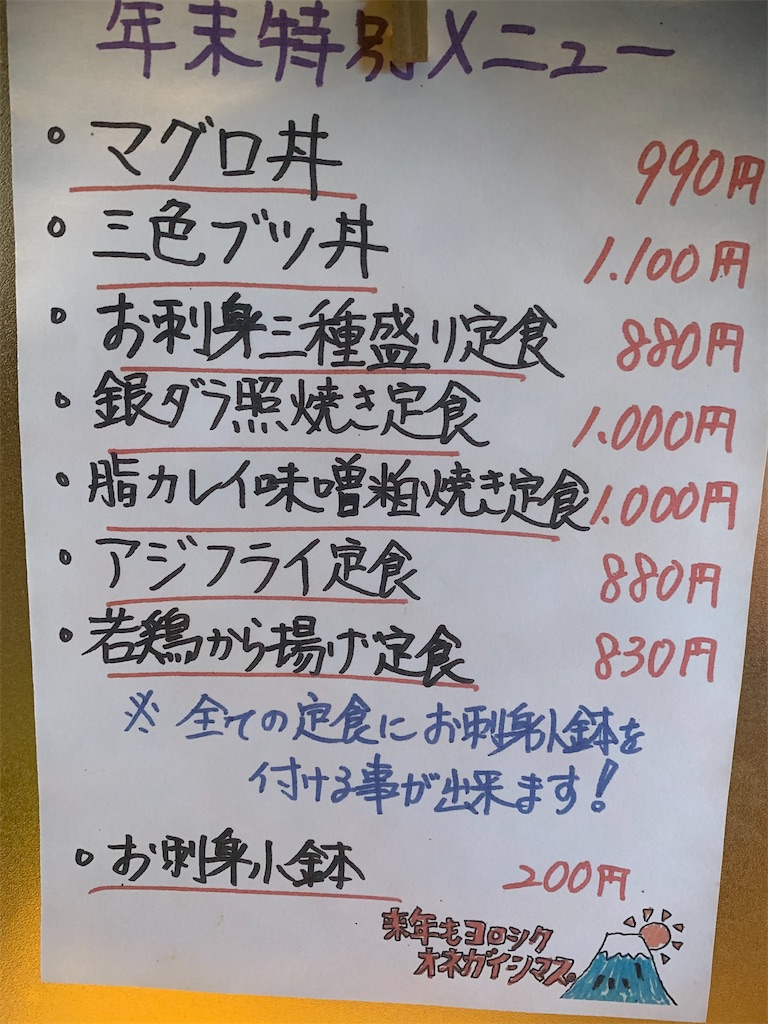 年末特別メニュー
。マグロ丼 990円
。三色ブツ丼 1.100円
。お刺身三種盛り定食 880円
。銀ダラ照焼き定食 1.000円
。脂カレイ味噌粕焼き定食 1.000円
。アジフライ定食 880円
。若鶏から揚げ定食 830円
※ 全ての定食にお刺身小鉢を
付ける事が出来ます!
。お刺身小鉢 200円
来年もヨロシク
オネガイシマス。